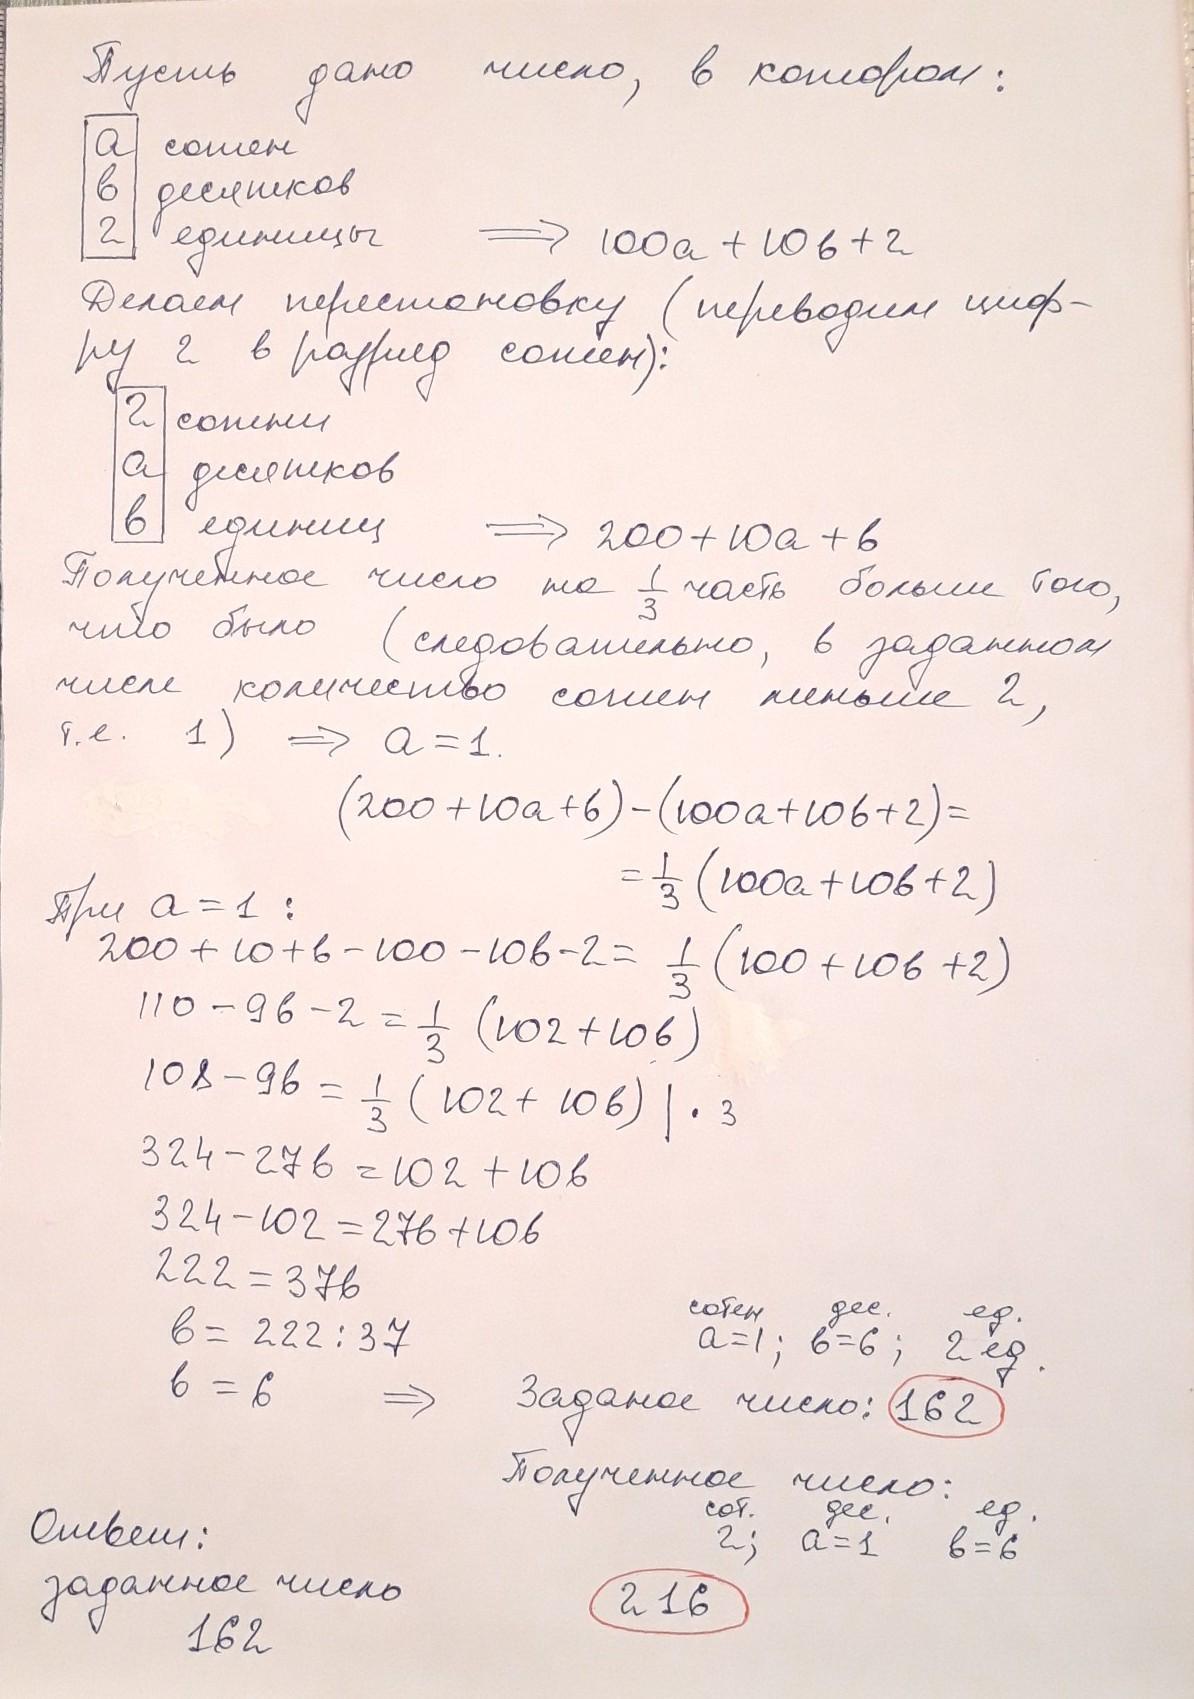 Пусть дано число, в котором:
а сотен
в десятков
2 единицы ⟹ 100а + 10в + 2
Делаем перестановку (переводим циф-
ру 2 в разряд сотен):
2 сотни
а десятков
в единиц ⟹ 200 + 10а + в
Полученное число на 1/3 часть больше того,
что было (следовательно, в заданном
числе количество сотен меньше 2,
т.е. 1) ⟹ а = 1.
(200 + 10а + в) - (100а + 10в + 2) =
= 1/3 (100а + 10в + 2)
При а = 1 :
200 + 10 + в - 100 - 10в - 2 = 1/3 (100 + 10в + 2)
110 - 9в - 2 = 1/3 (102 + 10в)
108 - 9в = 1/3 (102 + 10в) | · 3
324 - 27в = 102 + 10в
324 - 102 = 27в + 10в
222 = 37в
в = 222 : 37
в = 6 ⟹
сотен дес. ед.
а=1; в=6; 2 ед.
Заданое число: 162
Полученное число:
сот. дес. ед.
2; а=1 в=6
216
Ответ:
заданное число
162